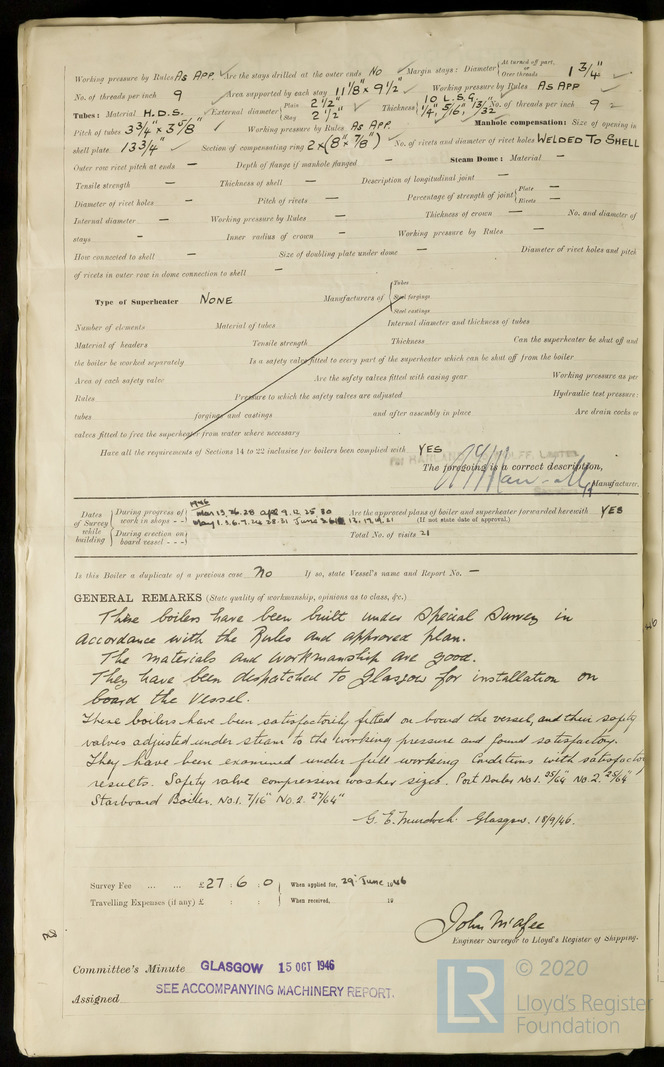 Working pressure by Rules As App. ✓ Are the stays drilled at the outer ends No ✓ Margin stays: Diameter { At turned off part, or Over threads 1 3/4" ✓
No. of threads per inch 9 ✓ Area supported by each stay 11 1/8 × 9 1/2" ✓ Working pressure by Rules As App ✓
Tubes: Material H.D.S. ✓ External diameter { Plain 2 1/2" Stay 2 1/2" ✓ Thickness { 10 L.S.G. 1/4", 5/16", 13/32" No. of threads per inch 9
Pitch of tubes 3 3/4" × 3 5/8" ✓ Working pressure by Rules As App. Manhole compensation: Size of opening in
shell plate 13 3/4" ✓ Section of compensating ring 2×(8"×7/8") ✓ No. of rivets and diameter of rivet holes Welded To Shell
Outer row rivet pitch at ends — Depth of flange if manhole flanged — Steam Dome: Material —
Tensile strength — Thickness of shell — Description of longitudinal joint —
Diameter of rivet holes — Pitch of rivets — Percentage of strength of joint { Plate — Rivets —
Internal diameter — Working pressure by Rules — Thickness of crown — No. and diameter of
stays — Inner radius of crown — Working pressure by Rules —
How connected to shell — Size of doubling plate under dome — Diameter of rivet holes and pitch
of rivets in outer row in dome connection to shell —
Type of Superheater None Manufacturers of { Tubes Steel forgings Steel castings
Number of elements Material of tubes Internal diameter and thickness of tubes
Material of headers Tensile strength Thickness Can the superheater be shut off and
the boiler be worked separately Is a safety valve fitted to every part of the superheater which can be shut off from the boiler
Area of each safety valve Are the safety valves fitted with easing gear Working pressure as per
Rules Pressure to which the safety valves are adjusted Hydraulic test pressure:
tubes forgings and castings and after assembly in place Are drain cocks or
valves fitted to free the superheater from water where necessary
Have all the requirements of Sections 14 to 22 inclusive for boilers been complied with YES
For HARLAND & WOLFF, Limited
The foregoing is a correct description,
Manufacturer.
Dates of Survey while building { During progress of work in shops - - } 1946 Mar 13, 26. 28 Apr 9. 12. 25. 30 Are the approved plans of boiler and superheater forwarded herewith YES
May 1. 3. 6. 7. 24 28. 31 June 13. 17. 19. 21 (If not state date of approval.)
{ During erection on board vessel - - - } Total No. of visits 21
Is this Boiler a duplicate of a previous case No If so, state Vessel's name and Report No. —
GENERAL REMARKS (State quality of workmanship, opinions as to class, &c.)
These boilers have been built under Special Survey in
accordance with the Rules and approved plan.
The materials and workmanship are good.
They have been despatched to Glasgow for installation on
board the vessel.
These boilers have been satisfactorily fitted on board the vessel, and their safety
valves adjusted under steam to the working pressure and found satisfactory.
They have been examined under full working conditions with satisfactory
results. Safety valve compression washer sizes. Port Boiler No 1. 25/64" No. 2. 25/64"
Starboard Boiler. No. 1. 7/16" No. 2. 27/64"
G. E. Murdoch. Glasgow. 18/9/46.
Survey Fee ... ... £27 : 6 : 0 When applied for, 29 June 1946
Travelling Expenses (if any) £ : : When received, 19
John McAfee
Engineer Surveyor to Lloyd's Register of Shipping.
Committee's Minute GLASGOW 15 OCT 1946
Assigned SEE ACCOMPANYING MACHINERY REPORT.
LR © 2020
Lloyd's Register
Foundation